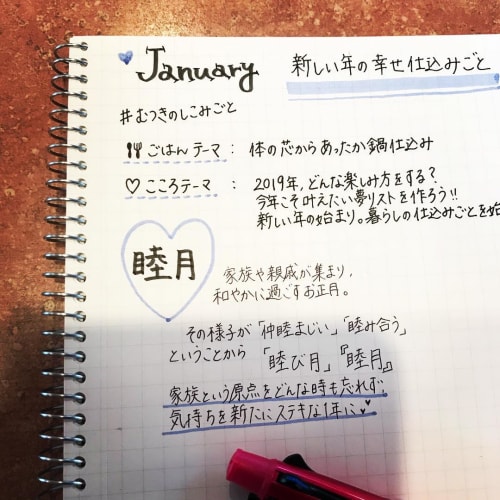 January 新しい年の幸せ仕込みごと
#むつきのしこみごと
ごはんテーマ : 体の芯からあったか鍋仕込み
こころテーマ : 2019年,どんな楽しみ方をする?
今年こそ叶えたい夢リストを作ろう!!
新しい年の始まり。暮らしの仕込みごとを始
睦月
家族や親戚が集まり,
和やかに過ごすお正月。
その様子が「仲睦まじい」「睦み合う」
ということから「睦び月」『睦月』
家族という原点をどんな時も忘れず,
気持ちを新たにステキな1年に